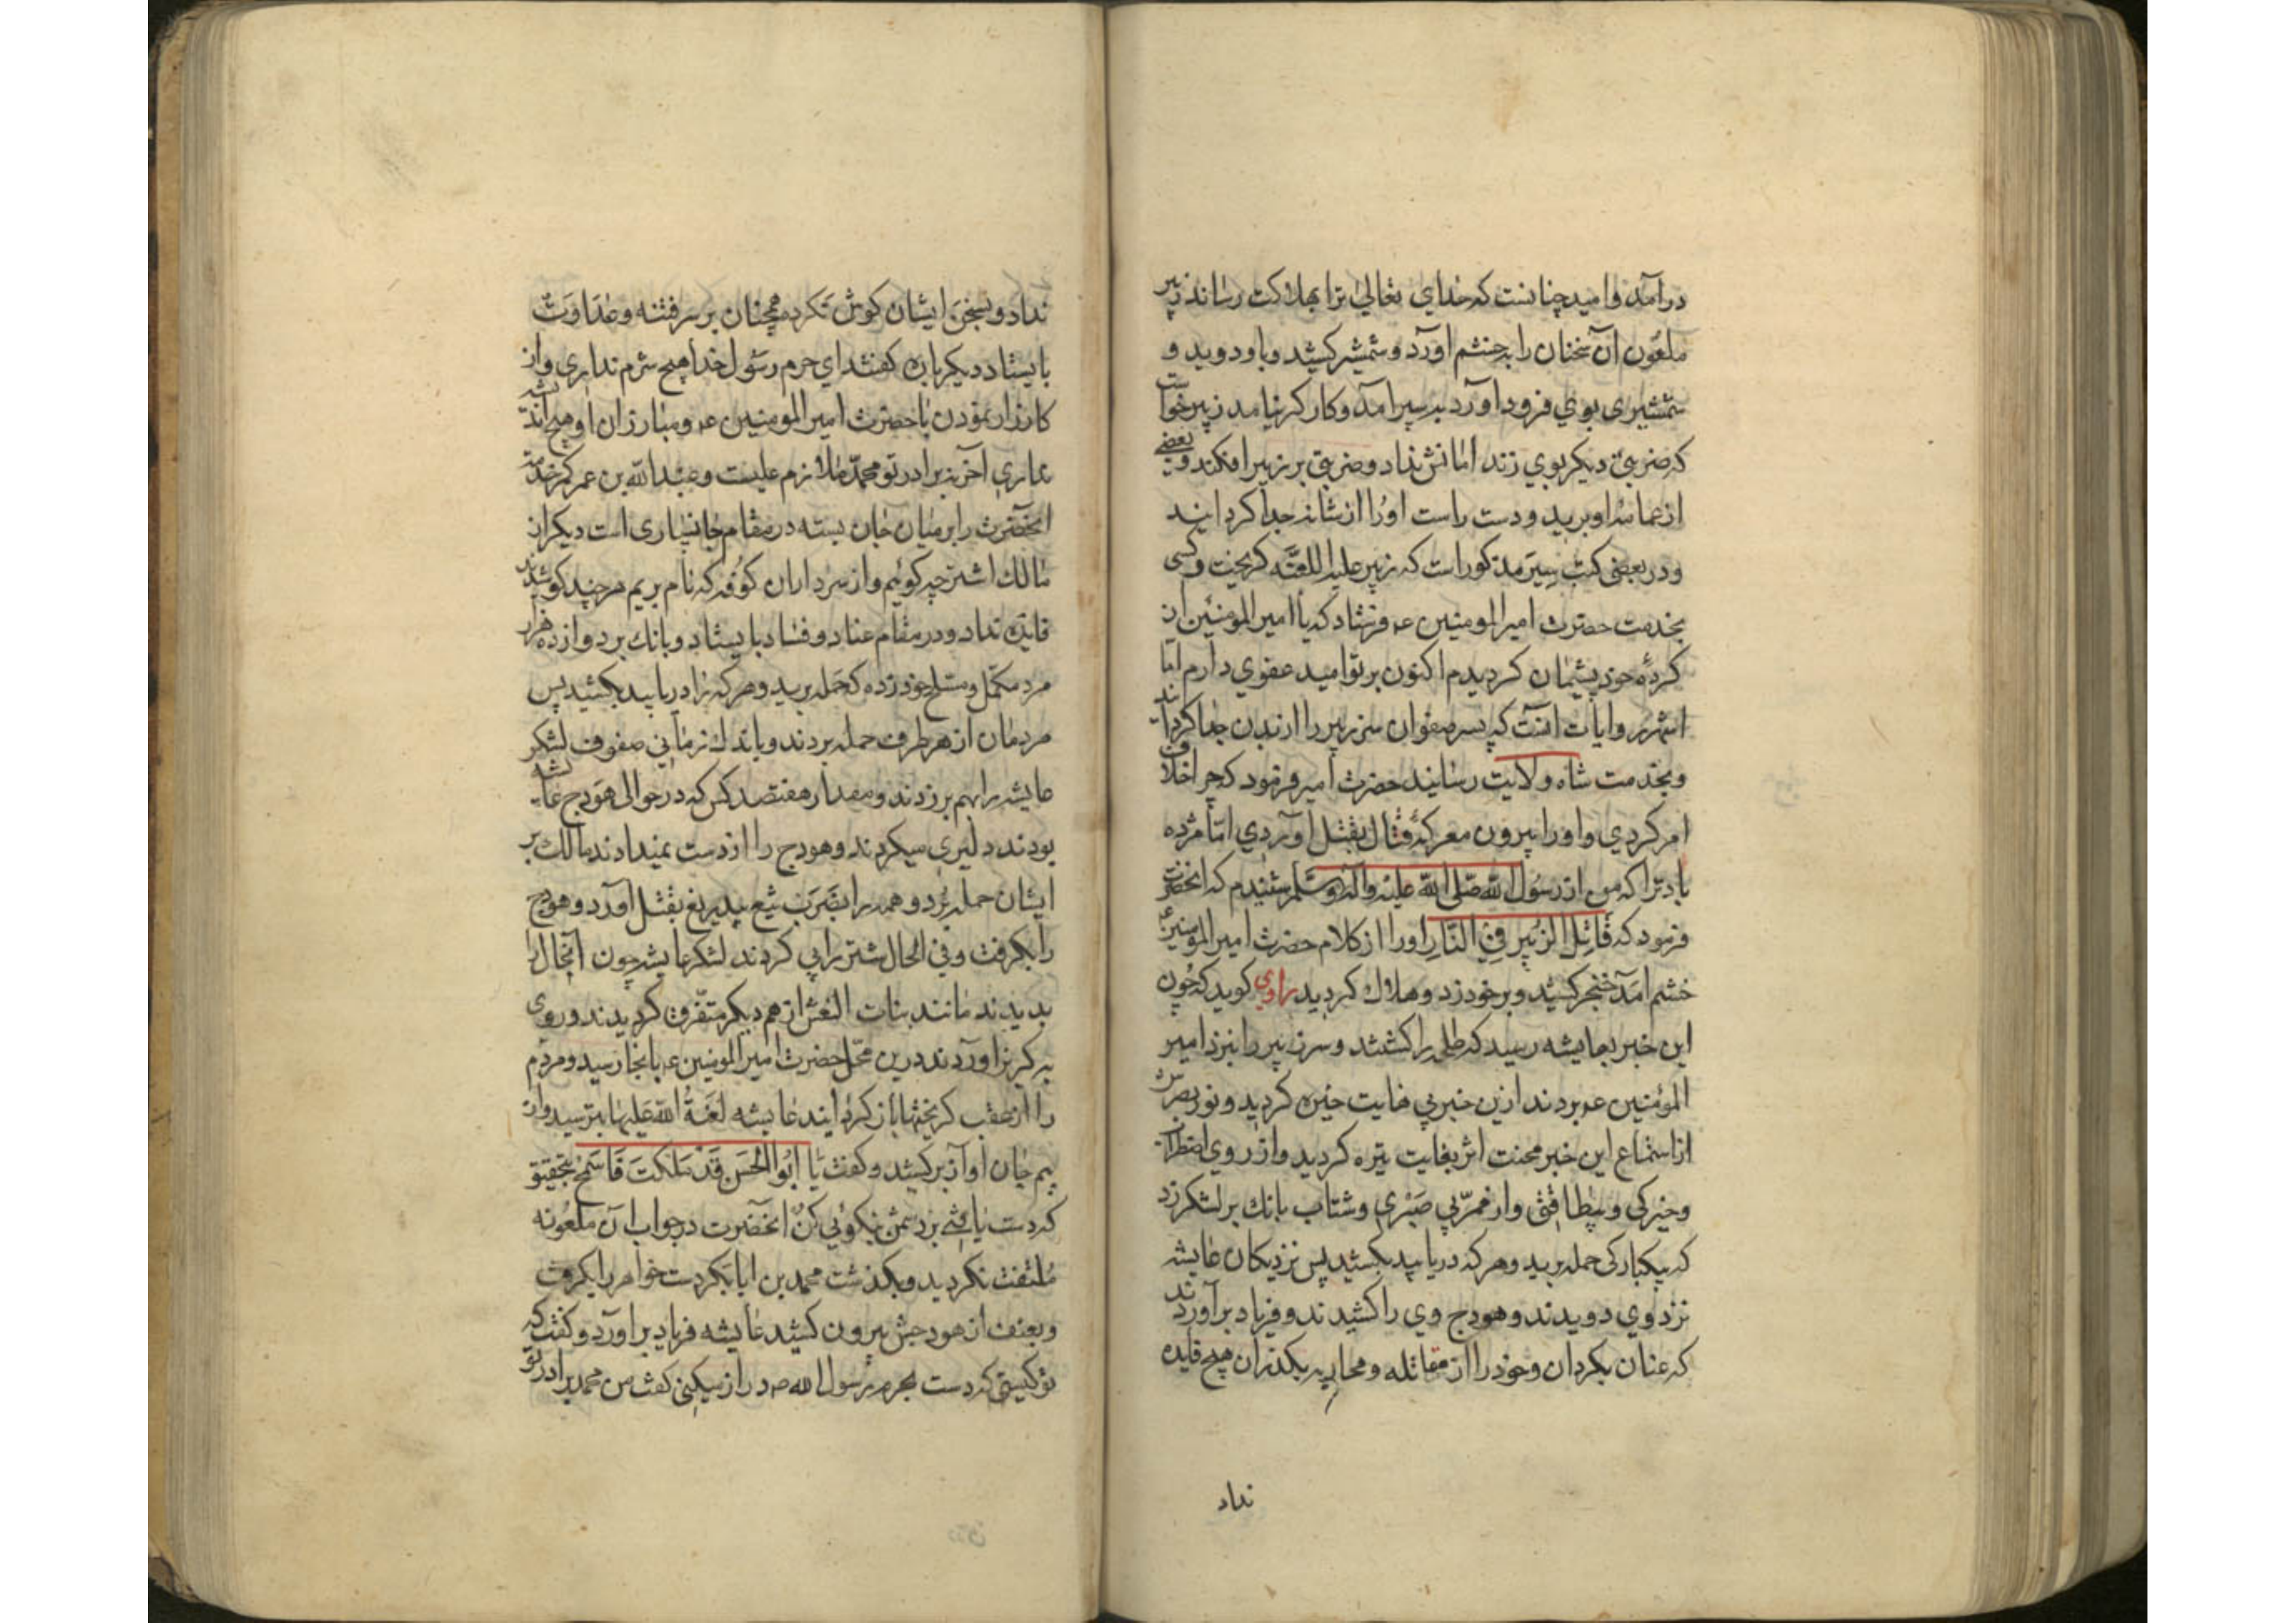 درآمد و امید چنانست که خدای تعالی ترا بهلاکت رساند زبیر
ملعون آن سخنان را بخشم آورد و شمشیر کشید و باو دوید و
شمشیری بوی فرود آورد بسپر آمد و کارکر نیامد زبیر خواست
که ضربتی دیکر بوی زند امانش نداد و ضربتی بر زبیر افکند و بعضی
از عمامه او برید و دست راست او را از شانه جدا کردانید
و در بعضی کتب سیر مذکور است که زبیر علیه اللعنه کریخت و کسی
بخدمت حضرت امیرالمومنین عم فرستاد که یا امیرالمومنین از
کردهٔ خود پشیمان کردیدم اکنون بر تو امید عفوی دارم اما
اشهر روایات آنست که پسر صفوان سر زبیر را از بدن جدا کردانید
و بخدمت شاه ولایت رسانید حضرت امیر فرمود که چرا خلاف
امر کردی و او را بیرون معرکهٔ قتال بقتل آوردی اما مژده
باد ترا که من از رسول الله صلی الله علیه واله وسلم شنیدم که انحضرت
فرمود که قاتل الزبیر فی النار او را از کلام حضرت امیرالمومنین عم
خشم آمد خنجر کشید و بر خود زد و هلاک کردید راوی کوید که چون
این خبر بعایشه رسید که طلحه را کشتند و سر زبیر را بنزد امیر
المومنین عم بردند ازین خبر بی غایت خیره کردید و نور بصرش
از استماع این خبر محنت اثر بغایت تیره کردید و از روی اضطراب
و خیرکی و بیطاقتی و از غم بی صبری و شتاب بانک بر لشکر زد
که بیکبارکی حمله برید و هر که دریابید بکشید پس نزدیکان عایشه
نزد وی دویدند و هودج وی را کشیدند و فریاد برآوردند
که عنان بکردان و خود را از مقاتله و محاربه بکذران هیچ فایده
نداد
نداد و بسخن ایشان کوش نکرد همچنان بر سر فتنه و عداوت
بایستاد دیکر باره کفتند ای حرم رسول خدا هیچ شرم نداری و از
کارزار نمودن با حضرت امیرالمومنین عم و مبارزان او هیچ اندیشه
نداری آخر نه برادر تو محمد ملازم علیست و عبدالله بن عمر کمر خدمت
انحضرت را بر میان جان بسته در مقام جانسپاری است دیکر از
مالک اشتر چه کوئیم و از سرداران کوفه که نام بریم هر چند کوشیدند
فایده نداد و در مقام عناد و فساد بایستاد و بانک برد وازده هزار
مرد مکمل و مسلح خود زده که حمله برید و هر که را دریابید بکشید پس
مردمان از هر طرف حمله بردند و باندک زمانی صفوف لشکر
عایشه را بهم بر زدند و مقدار هفتصد کس که در حوالی هودج عایشه
بودند دلیری میکردند و هودج را از دست نمیدادند مالک بر
ایشان حمله برد و همه را بضرب تیغ بیدریغ بقتل آورد و هودج
را بکرفت و فی الحال شتر را پی کردند لشکر عایشه چون آنحال را
بدیدند مانند بنات النعش از هم دیکر متفرق کردیدند و روی
بکریز آوردند درین محل حضرت امیرالمومنین عم بانجا رسید و مردم
را از عقب کریختها باز کردانید عایشه لعنة الله علیها بترسید و از
بیم جان آواز برکشید و کفت یا ابوالحسن قد ملکت فاسمح بتحقیق
که دست یافتی بر دشمن نیکوئی کن انحضرت در جواب آن ملعونه
ملتفت نکردید و بکذشت محمد بن ابابکر دست خواهر را بکرفت
و بعنف از هودجش بیرون کشید عایشه فریاد برآورد و کفت که
تو کیستی که دست بحرم رسول الله ص دراز میکنی کفت من محمد برادر تو